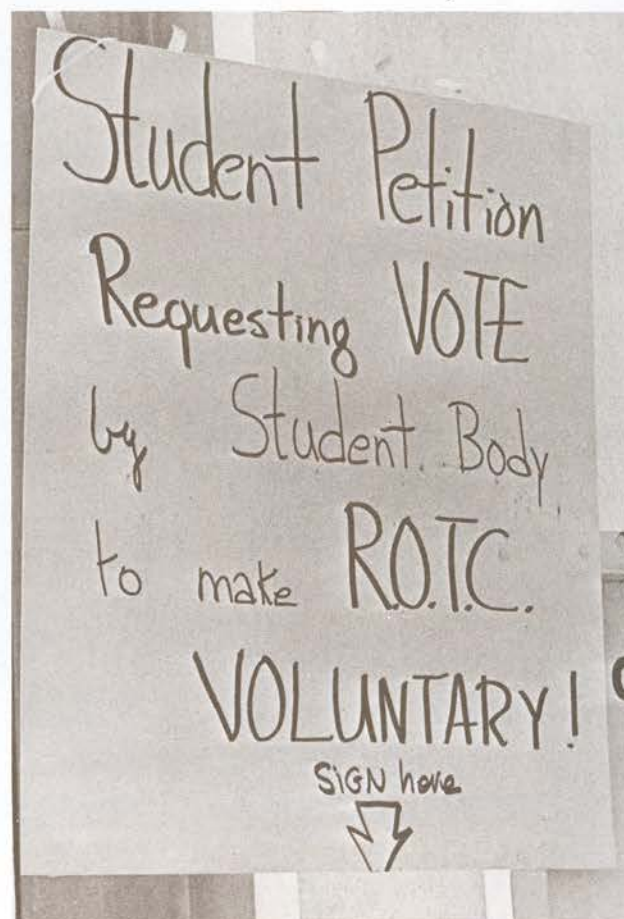 Student Petition
Requesting VOTE
by Student Body
to make R.O.T.C.
VOLUNTARY!
SiGN here